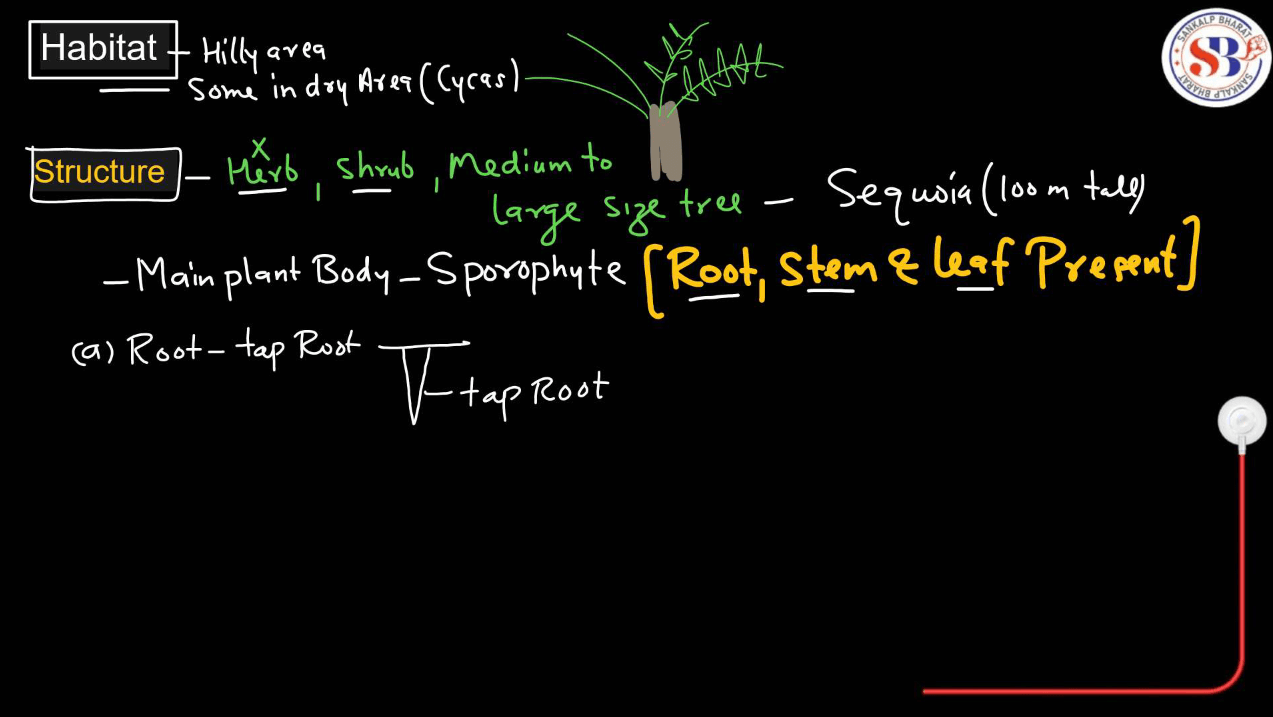 Habitat - Hilly area
Some in dry Area (Cycas)
Structure - Herb, Shrub, Medium to
x
large size tree - Sequoia (100 m tall)
- Main plant Body - Sporophyte [Root, Stem & leaf Present]
(a) Root - tap Root
tap Root
SANKALP BHARAT
SB
SANKALP BHARAT